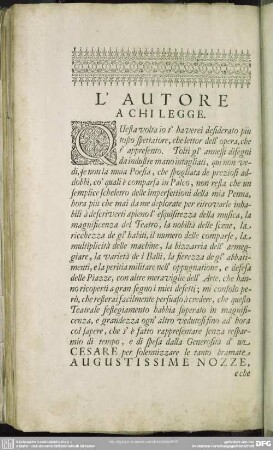 L' AUTORE
A CHI LEGGE.
QUesta volta io t' haverei desiderato più
tosto spettatore, che lettor dell' opera, che
t' appresento. Tolti gl' annessi disegni
da industre mano intagliati, qui non ve-
di, se non la muta Poesia, che spogliata de preziosi ad-
dobbi, co' quali è comparsa in Palco, non resta che un
semplice scheletro delle imperfettioni della mia Penna,
hora più che mai da me deplorate per ritrovarle inha-
bili à descriverti apieno l' esquisitezza della musica, la
magnificenza del Teatro, la nobiltà delle scene, la
ricchezza de gl' habiti, il numero delle comparse, la
multiplicità delle machine, la bizzarria dell' armeg-
giare, la varietà de i Balli, la fierezza de gl' abbati-
menti, e la peritia militare nell' oppugnatione, e diffesa
delle Piazze, con altre maraviglie dell' Arte, che han-
no ricoperti a gran segno i miei difetti; mi consolo pe-
rò, che resterai facilmente persuaso à credere, che questo
Teatrale festeggiamento habbia superato in magnifi-
cenza, e grandezza ogn' altro vedutosi fino ad hora
col sapere, che s' è fatto rappresentare senza rispar-
mio di tempo, e di spesa dalla Generosità d' un
CESARE per solennizzare le tanto bramate
AUGUSTISSIME NOZZE,
e che